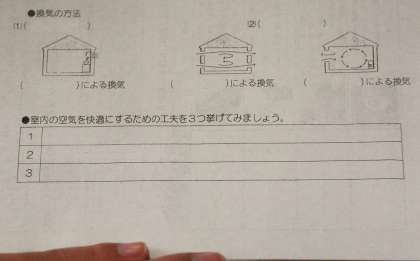 ●換気の方法
(1)(　　　　　)　(2)(　　　　　)
(　　　　　)による換気　(　　　　　)による換気　(　　　　　)による換気
●室内の空気を快適にするための工夫を３つ挙げてみましょう。
1
2
3